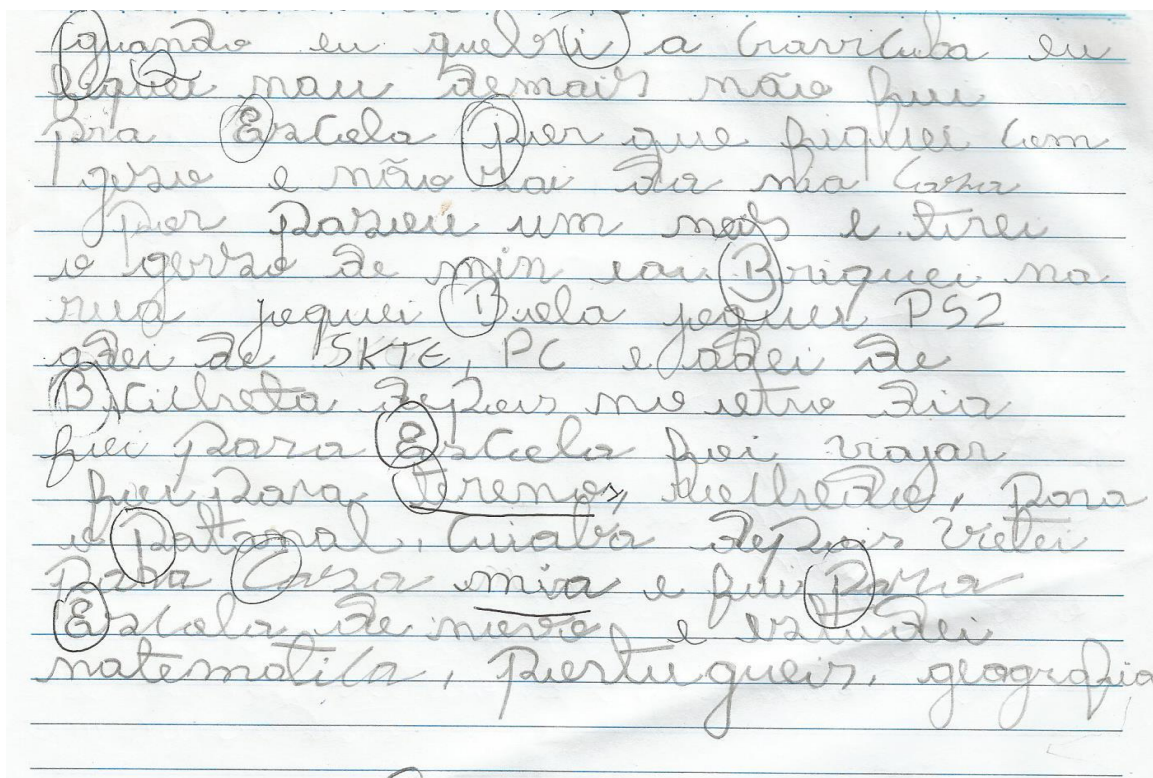 quando eu quebri a cravicula eu
fiquei mau demais não fui
pra Escola por que fiquei com
geso e não sai da mia casa
por pasou um mes e tirei
o gerso de min eai Briquei na
rua joquei Bola joquei PS2
adei de SKTE, PC e adei de
Bicicleta depois no otro dia
fui para Escola fui viajar
fui para Treno, , para
o Patanal, Cuiaba depois vetei
para Casa mia e fui Para
Escola de novo e estudei
matematica, portugueis, geografia